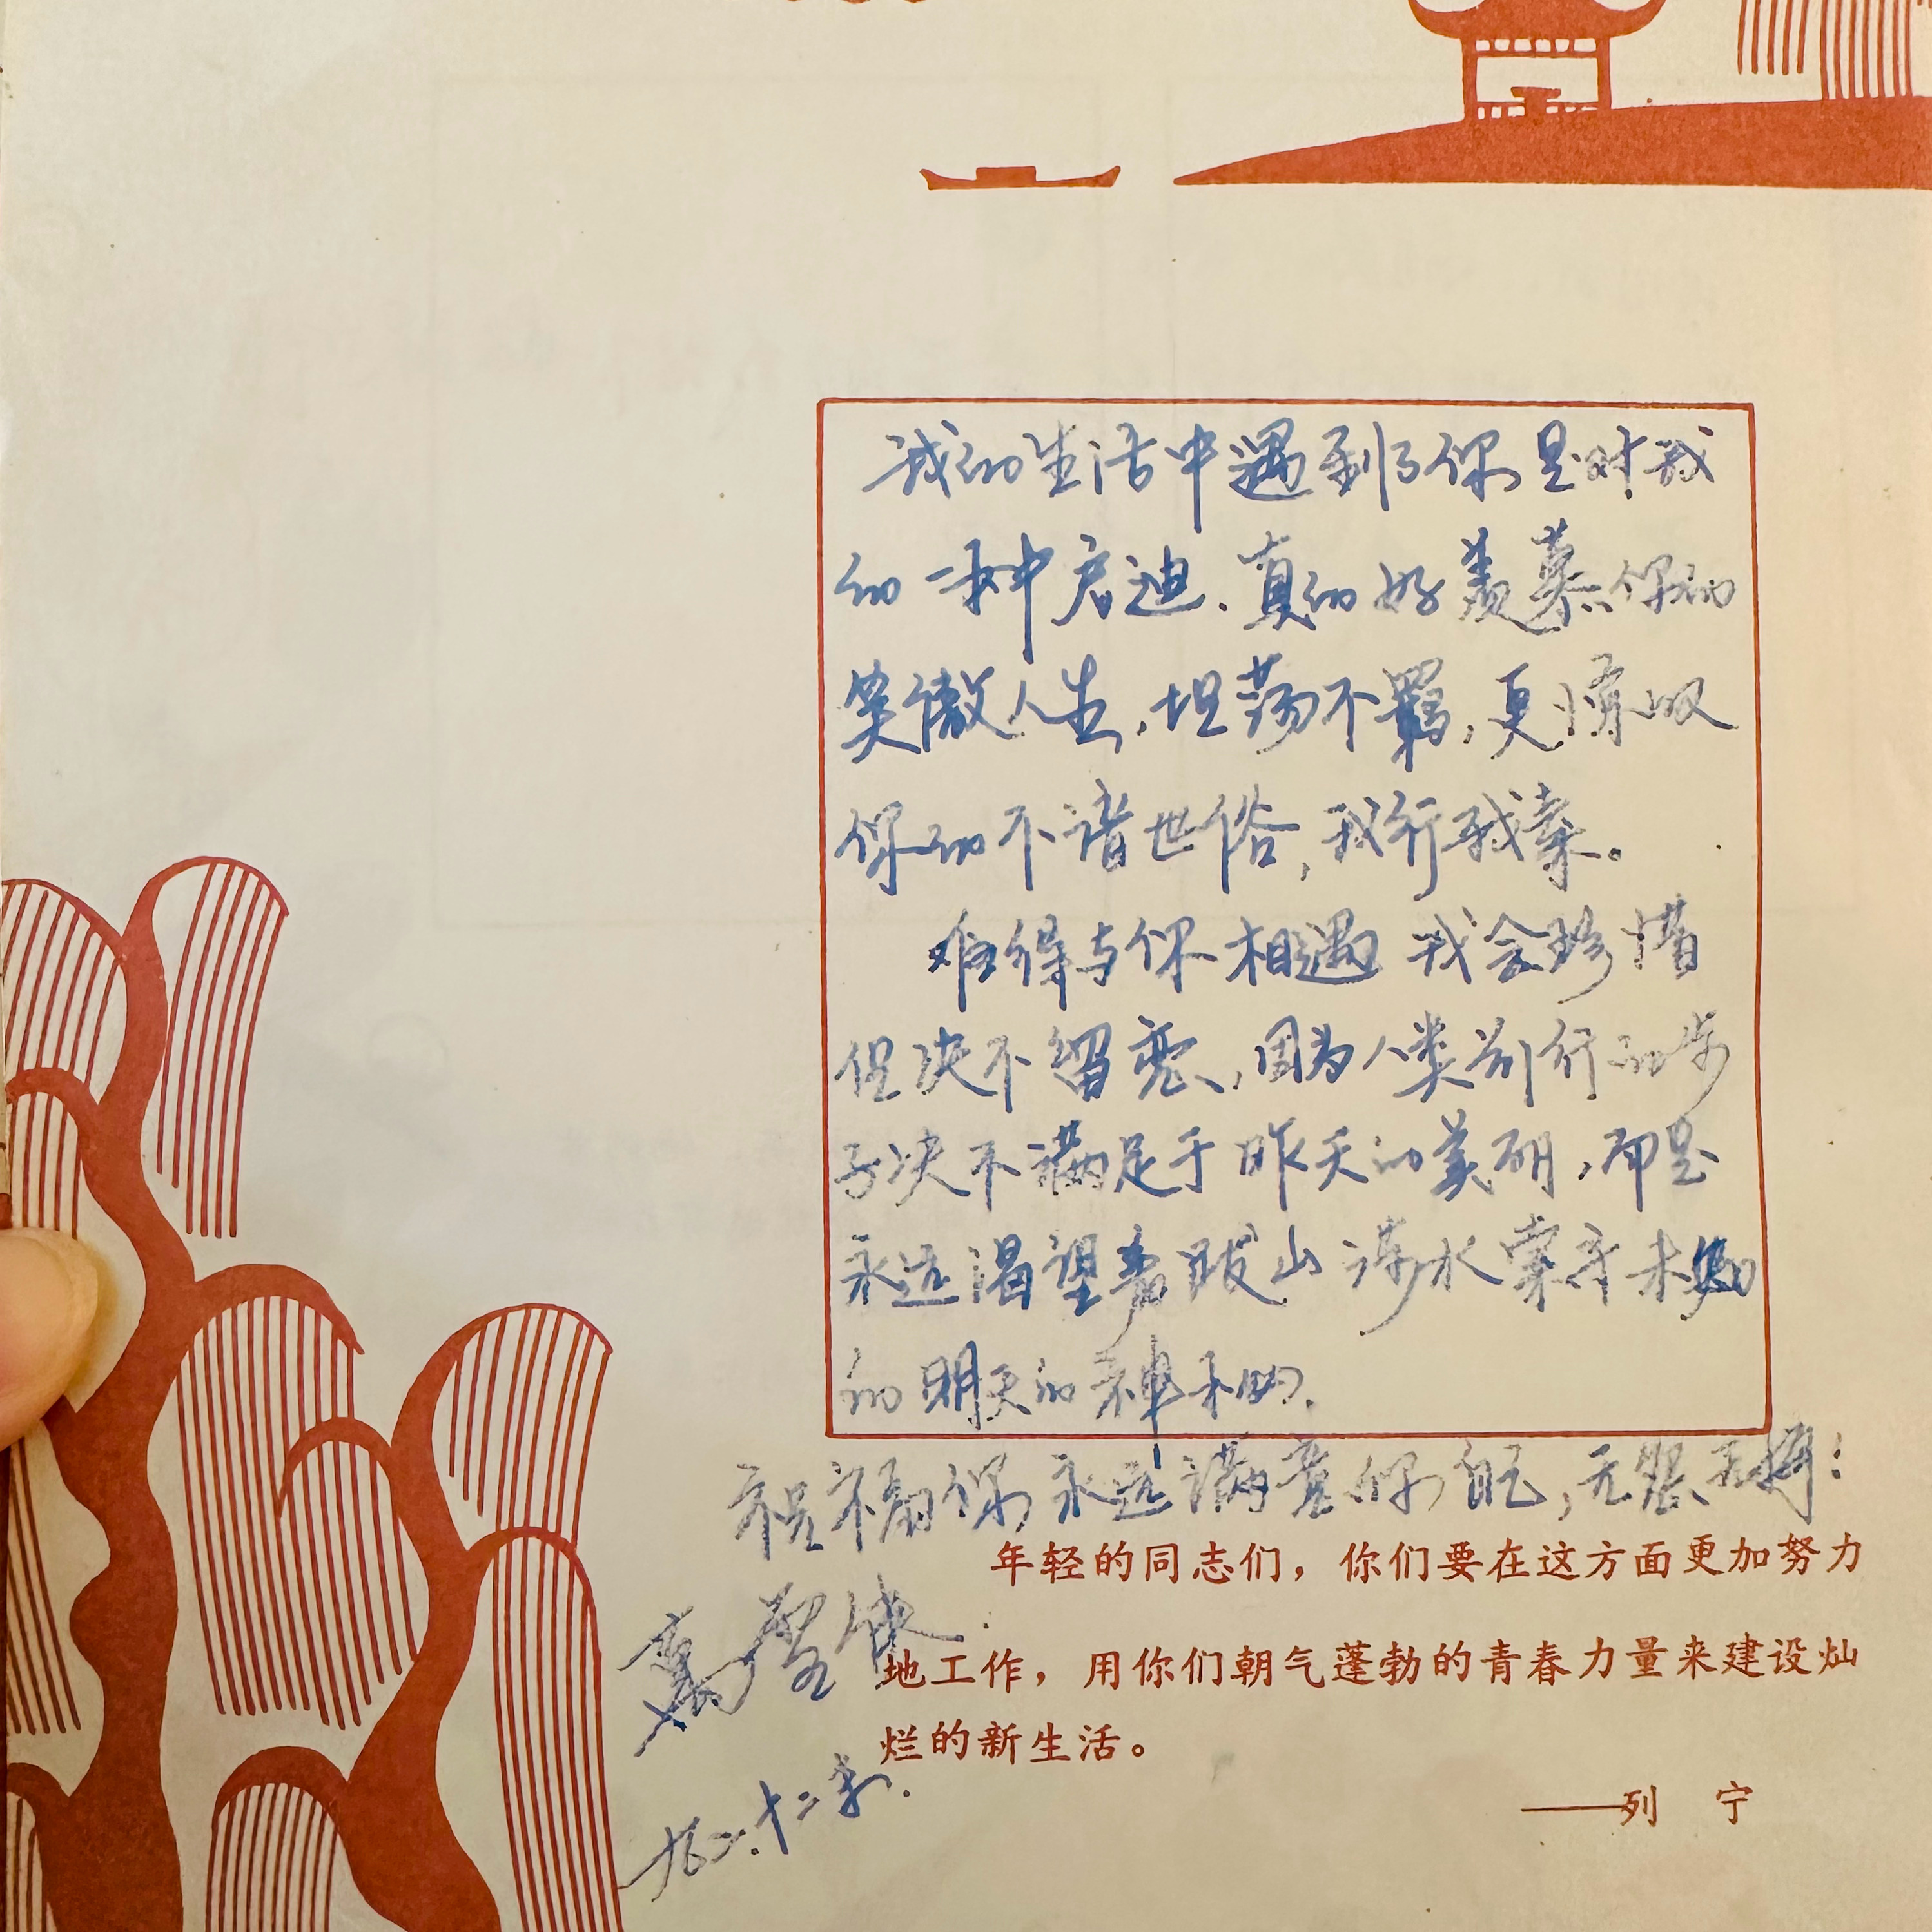 我的生活中遇到了你是对我
的一种启迪.真的好羡慕你的
笑傲人生,坦荡不羁,更惊叹
你的不谙世俗,我行我素。
难得与你相遇 我会珍惜
但决不留恋,因为人类前行的步
子决不满足于昨天的美丽,而是
永远渴望着跋山涉水寻未知
的明天的神秘.
祝福你永远满意你自己,无怨无悔:
年轻的同志们，你们要在这方面更加努力
地工作，用你们朝气蓬勃的青春力量来建设灿
烂的新生活。
——列 宁
九二.十二